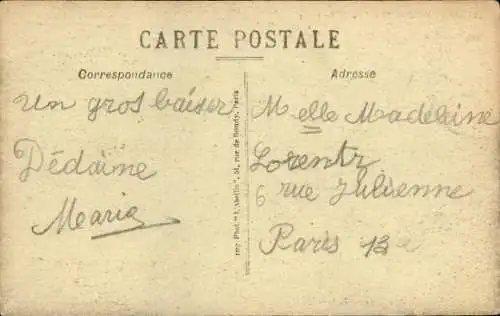 CARTE POSTALE
Correspondance
Un gros baiser
Dédaime
Maria
Imp. Phot. "L'Abeille", 51, rue de Bondy, Paris
Adresse
Melle Madeleine
Lorentz
6 rue Julienne
Paris 13e